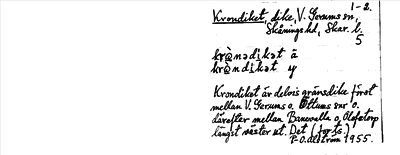 1-2.
Krondiket, dike, V. Gerums sn,
Skånings hd, Skar. l.
5
krò̱nədi̱kət ä
krò̱ndi̱kət y
Krondiket är delvis gränsdike först
mellan V. Gerums o. Öttums snr o.
därefter mellan Banevalla o. Olofstorp
längst väster ut. Det (forts.)
1955.